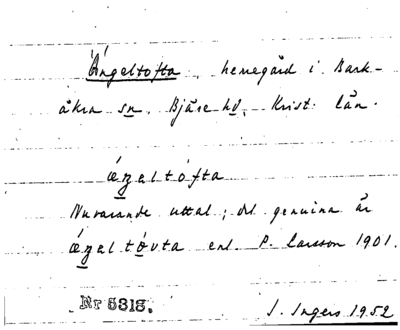 Ängeltofta, herregård i Bark-
åkra sn. Bjäre hd, Krist. län.
ǽŋeltófta
Nuvarande uttal; det genuina är
ǽŋeltóvta enl. P. Larsson 1901.
Nr 5313.
I. Ingers 1952